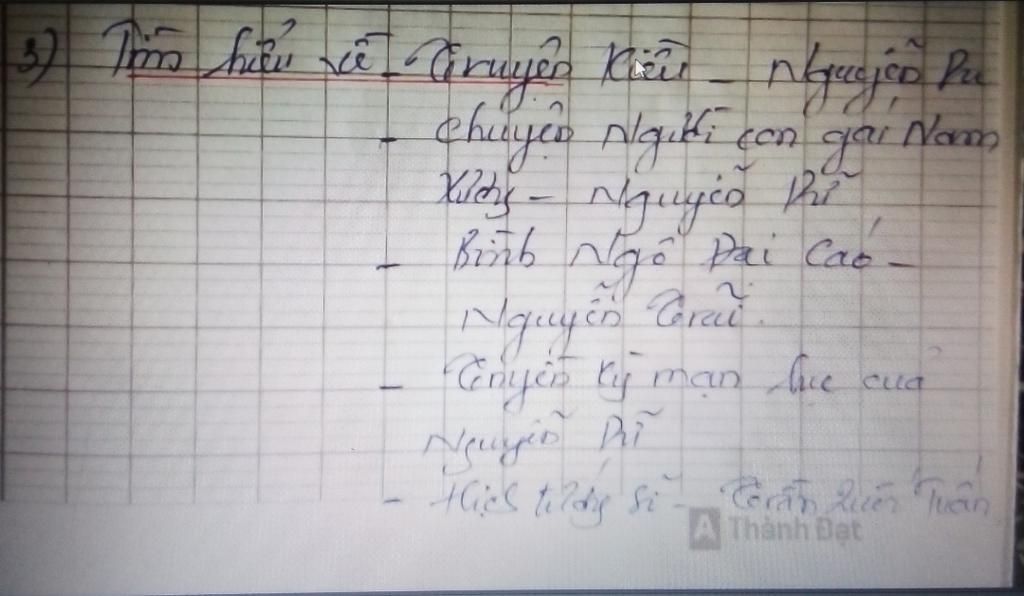 3) Tìm hiểu về - Truyện Kiều - Nguyễn Du
- Chuyện Người con gái Nam
Xương - Nguyễn Dữ
- Bình Ngô Đại Cáo -
Nguyễn Trãi.
- Truyền kỳ mạn lục của
Nguyễn Dữ
- Hịch tướng sĩ - Trần Quốc Tuấn
A Thành Đạt